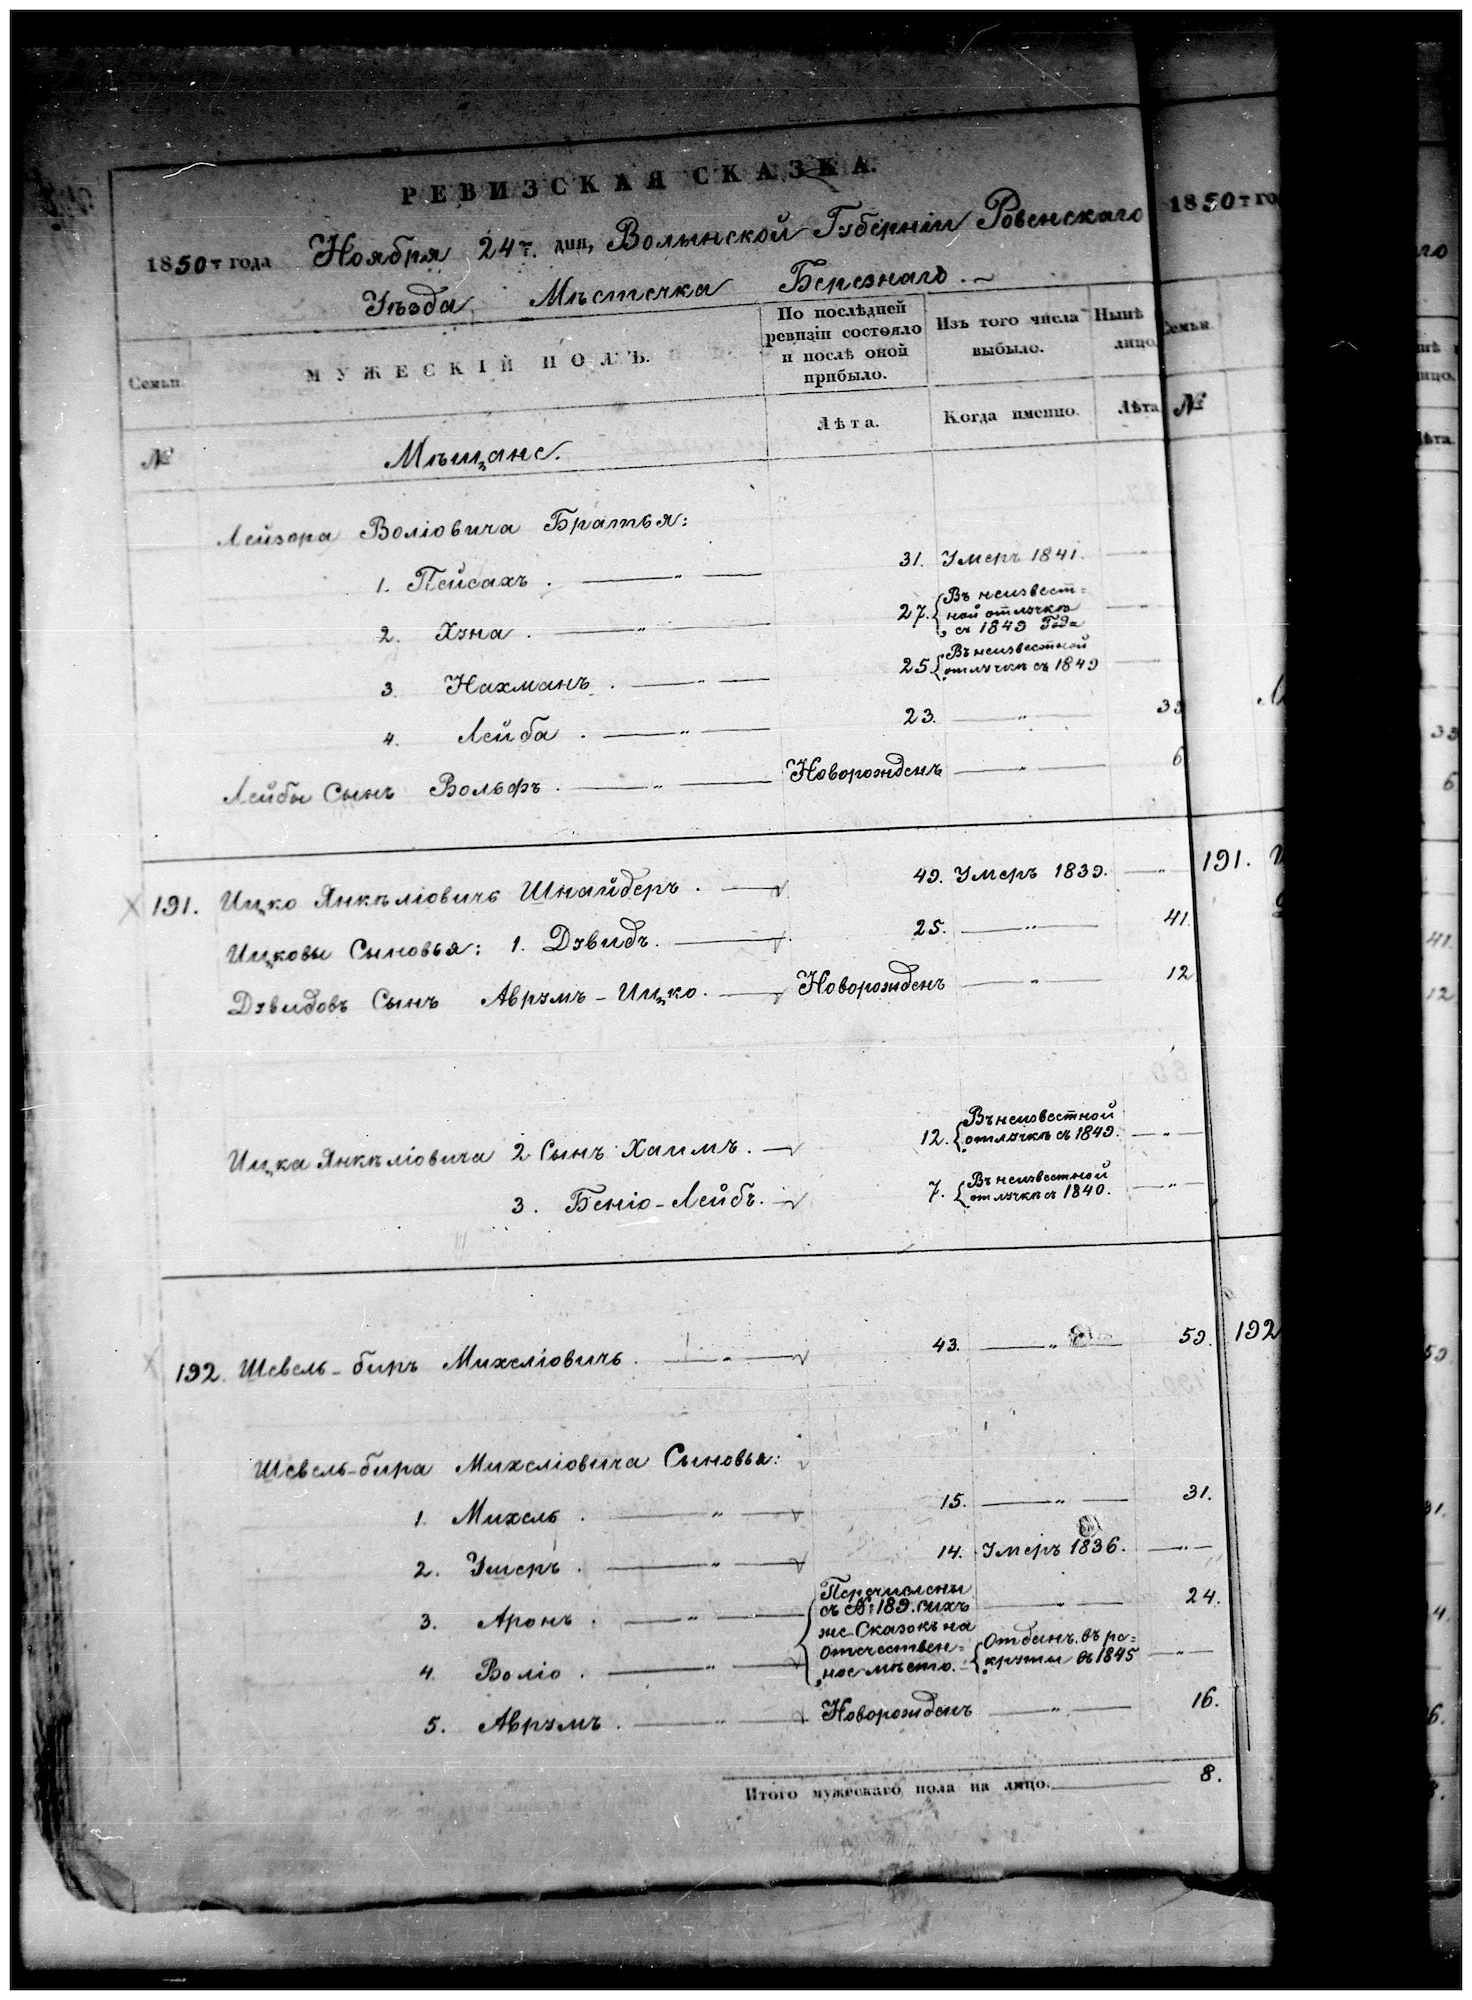 РЕВИЗСКАЯ СКАЗКА.
1850го года Ноября 24го дня, Волынской Губерніи Ровенскаго
Уѣзда Мѣстечка Березнаго.
Семьи.
МУЖЕСКІЙ ПОЛЪ.
По послѣдней ревизіи состояло и послѣ оной прибыло.
Изъ того числа выбыло.
Нынѣ лицо.
№
Лѣта.
Когда именно.
Лѣта
Мѣщане.
Лейзора Воліовича Братья:
1. Пейсахъ. — " — 31. Умеръ 1841. —
2. Хуна. — " — 27. Въ неизвест=
ной отлучкѣ
съ 1849 Года —
3. Нахманъ. — " — 25. Въ неизвестной
отлучкѣ съ 1849 —
4. Лейба. — " — 23. — " — 39
Лейбы Сынъ Вольфъ. — " — Новорожденъ — " — 6
191. Ицко Янкѣліовичъ Шнайдеръ. — 49. Умеръ 1839. — " —
Ицковы Сыновья: 1. Дувидъ. — 25. — " — 41.
Дувидовъ Сынъ Аврумъ-Ицко. — Новорожденъ — " — 12
Ицка Янкѣліовича 2 Сынъ Хаимъ. — 12. Въ неизвестной
отлучкѣ съ 1849. — " —
3. Беніо-Лейбъ. — 7. Въ неизвестной
отлучкѣ съ 1840. — " —
192. Шевель-биръ Михеліовичъ. — " — 43. — " — 59.
Шевель-бира Михеліовича Сыновья:
1. Михель. — " — 15. — " — 31.
2. Ушеръ. — " — 14. Умеръ 1836. — " —
3. Аронъ. — " — Перечислены
съ №: 189. сихъ
же Сказокъ на
отечествен=
ное мѣсто. — " — 24.
4. Воліо. — " — Отданъ въ ре=
круты въ 1845 — " —
5. Аврумъ. — " — Новорожденъ — " — 16.
Итого мужескаго пола на лицо. — 8.
1850го го
Семьи.
№
191.
192